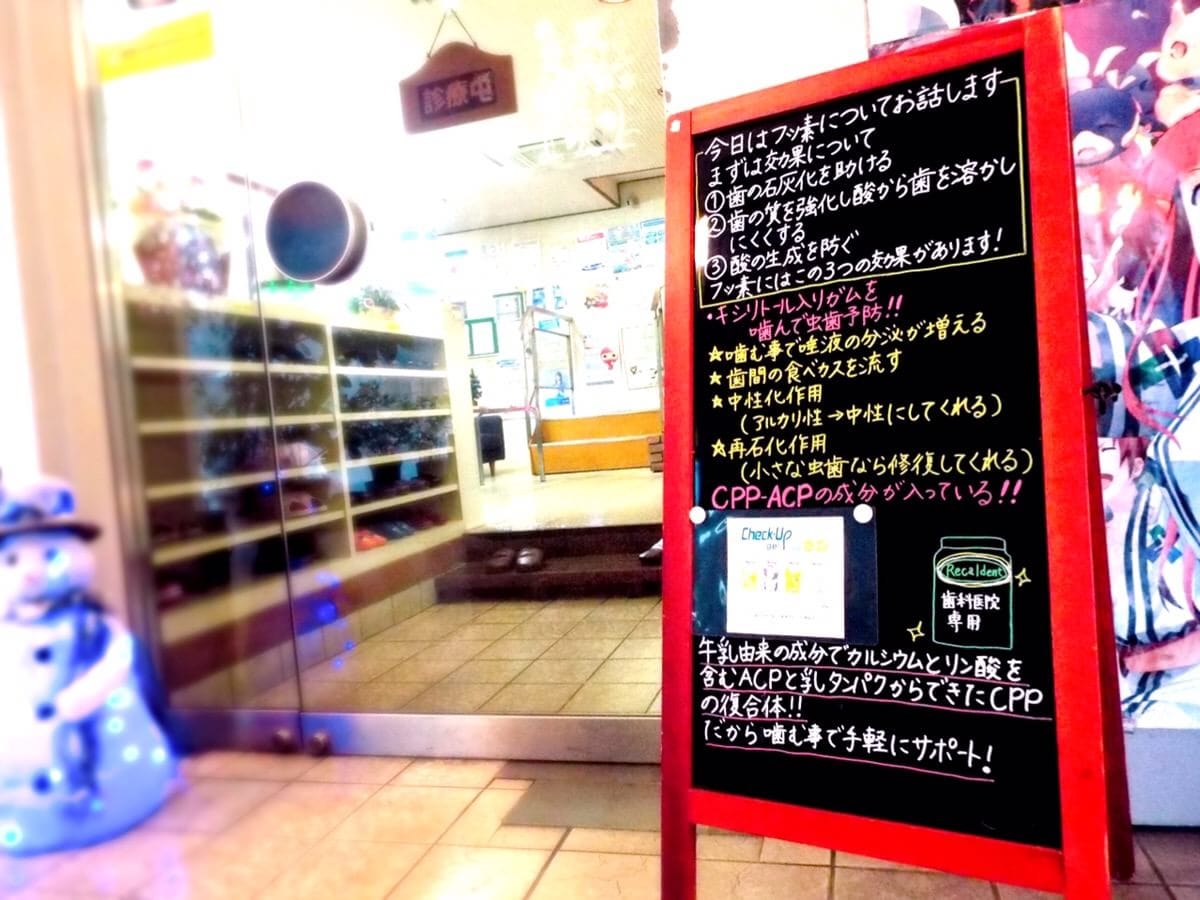 診療中
今日はフッ素についてお話します
まずは効果について
①歯の石灰化を助ける
②歯の質を強化し酸から歯を溶かし
にくくする
③酸の生成を防ぐ
フッ素にはこの3つの効果があります!
・キシリトール入りガムを
噛んで虫歯予防!!
☆噛む事で唾液の分泌が増える
☆歯間の食べカスを流す
☆中性化作用
(アルカリ性→中性にしてくれる)
☆再石化作用
(小さな虫歯なら修復してくれる)
CPP-ACPの成分が入っている!!
Check-Up
gel
Recaldent
歯科医院
専用
牛乳由来の成分でカルシウムとリン酸を
含むACPと乳タンパクからできたCPP
の復合体!!
だから噛む事で手軽にサポート!